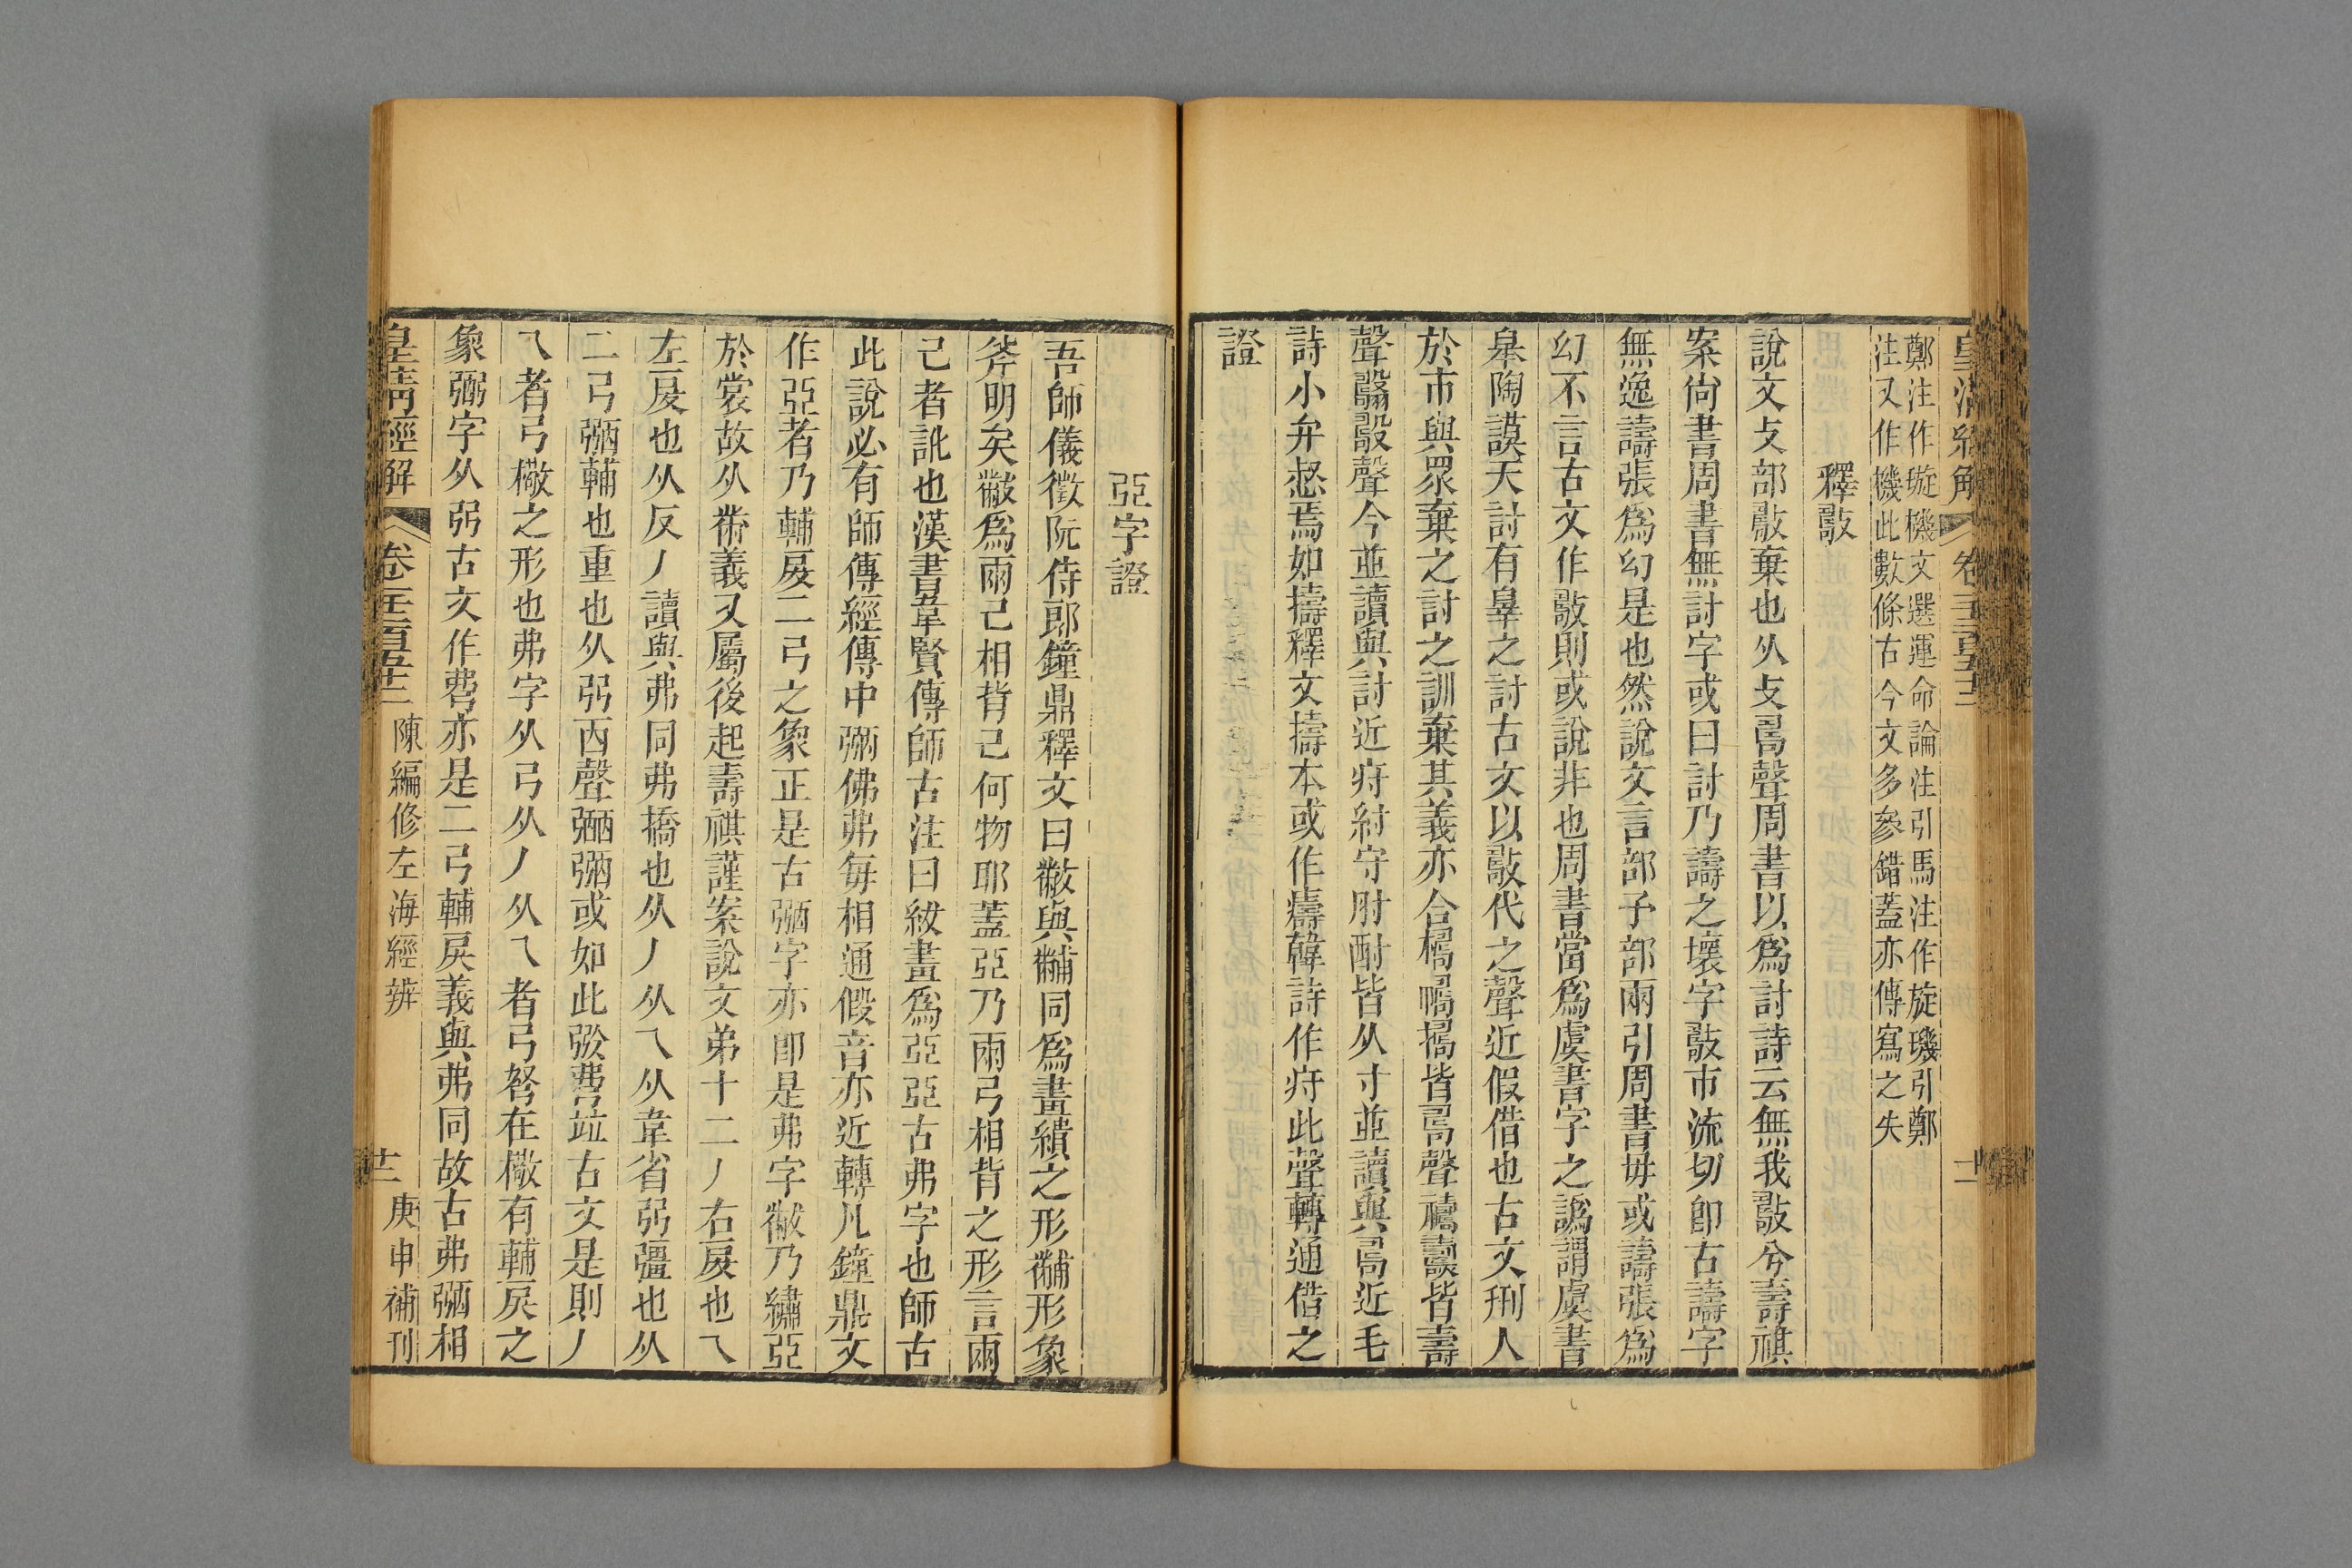 鄭注作璇機文選運命論注引馬注作旋璣引鄭
注又作機此數條古今文多參錯蓋亦傳寫之失
釋𢿢
說文攴部𢿢棄也从攴𠷎聲周書以爲討詩云無我𢿢兮壽祺
案尙書周書無討字或曰討乃譸之壞字𢿢市流切卽古譸字
無逸譸張爲幻是也然說文言部予部兩引周書毋或譸張爲
幻不言古文作𢿢則或說非也周書當爲虞書字之譌謂虞書
皋陶謨天討有辠之討古文以𢿢代之聲近假借也古文刑人
於市與眾棄之討之訓棄其義亦合
詩小弁惄焉如擣釋文擣本或作𤻮韓詩作疛此聲轉通借之
證
亞字證
吾師儀徵阮侍郎鐘鼎釋文曰黻與黼同爲畫繢之形黼形象
斧明矣黻爲兩己相背己何物耶蓋亞乃兩弓相背之形言兩
己者訛也漢書韋賢傳師古注曰紱畫爲亞亞古弗字也師古
此說必有師傳經傳中弼佛弗每相通假音亦近轉凡鐘鼎文
作亞者乃輔戾二弓之象正是古弼字亦卽是弗字黻乃繡亞
於裳故从黹義又屬後起壽祺謹案說文弟十二丿右戾也乀
左戾也从反丿讀與弗同弗撟也从丿从乀从韋省弜彊也从
二弓弼輔也重也从弜㐁聲弼弼或如此𢐡𢏇竝古文是則丿
乀者弓檠之形也弗字从弓从丿从乀者弓弩在檠有輔戾之
象弼字从弜古文作𢏇亦是二弓輔戾義與弗同故古弗弼相
皇淸經解 卷一千二百五十三 陳編修左海經辨 十二 庚申補刊